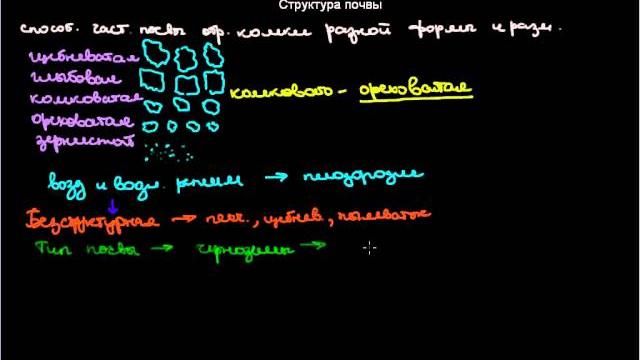 Структура почвы
способ. част. почвы обр. комки разной формы и разм.
щебневатая
глыбовая
комковатая
ореховатая
зернистой
комковато - ореховатая
возд и водн. режим → плодородие
Безструктурная → песч., щебнев., пылеватой
Тип почвы → чернозёмы →